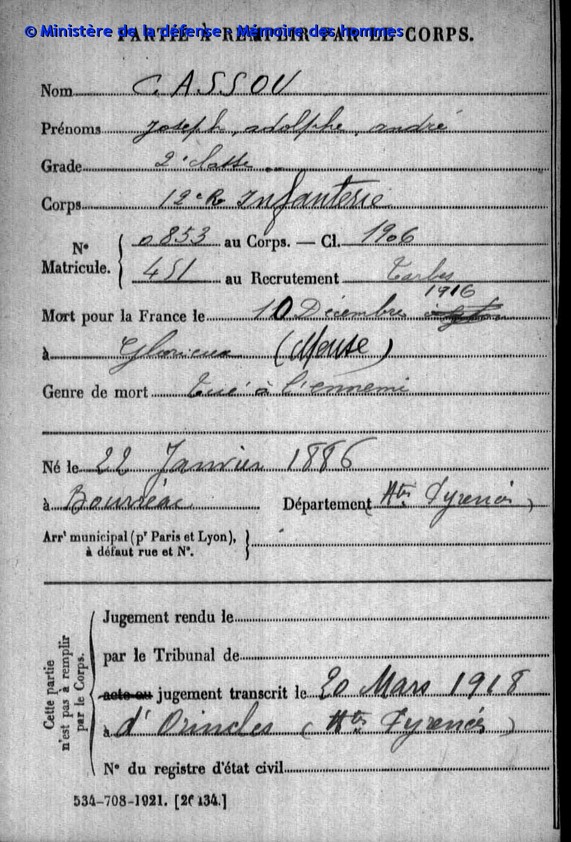 © Ministère de la défense - Mémoire des hommes
PARTIE À REMPLIR PAR LE CORPS.
Nom CASSOU
Prénoms Joseph, adolphe, andré
Grade 2e classe
Corps 12e Rt Infanterie
Nº Matricule. 0853 au Corps. — Cl. 1906
451 au Recrutement Tarbes
1916
Mort pour la France le 10 Décembre
à Glorieux (Meuse)
Genre de mort Tué à l'ennemi
Né le 22 Janvier 1886
à Bourréac Département Htes Pyrénées
Arrt municipal (pr Paris et Lyon),
à défaut rue et Nº.
Cette partie
n'est pas à remplir
par le Corps.
Jugement rendu le
par le Tribunal de
acte ou jugement transcrit le 20 Mars 1918
à d'Orincles (Htes Pyrénées)
Nº du registre d'état civil
534-708-1921. [26434.]